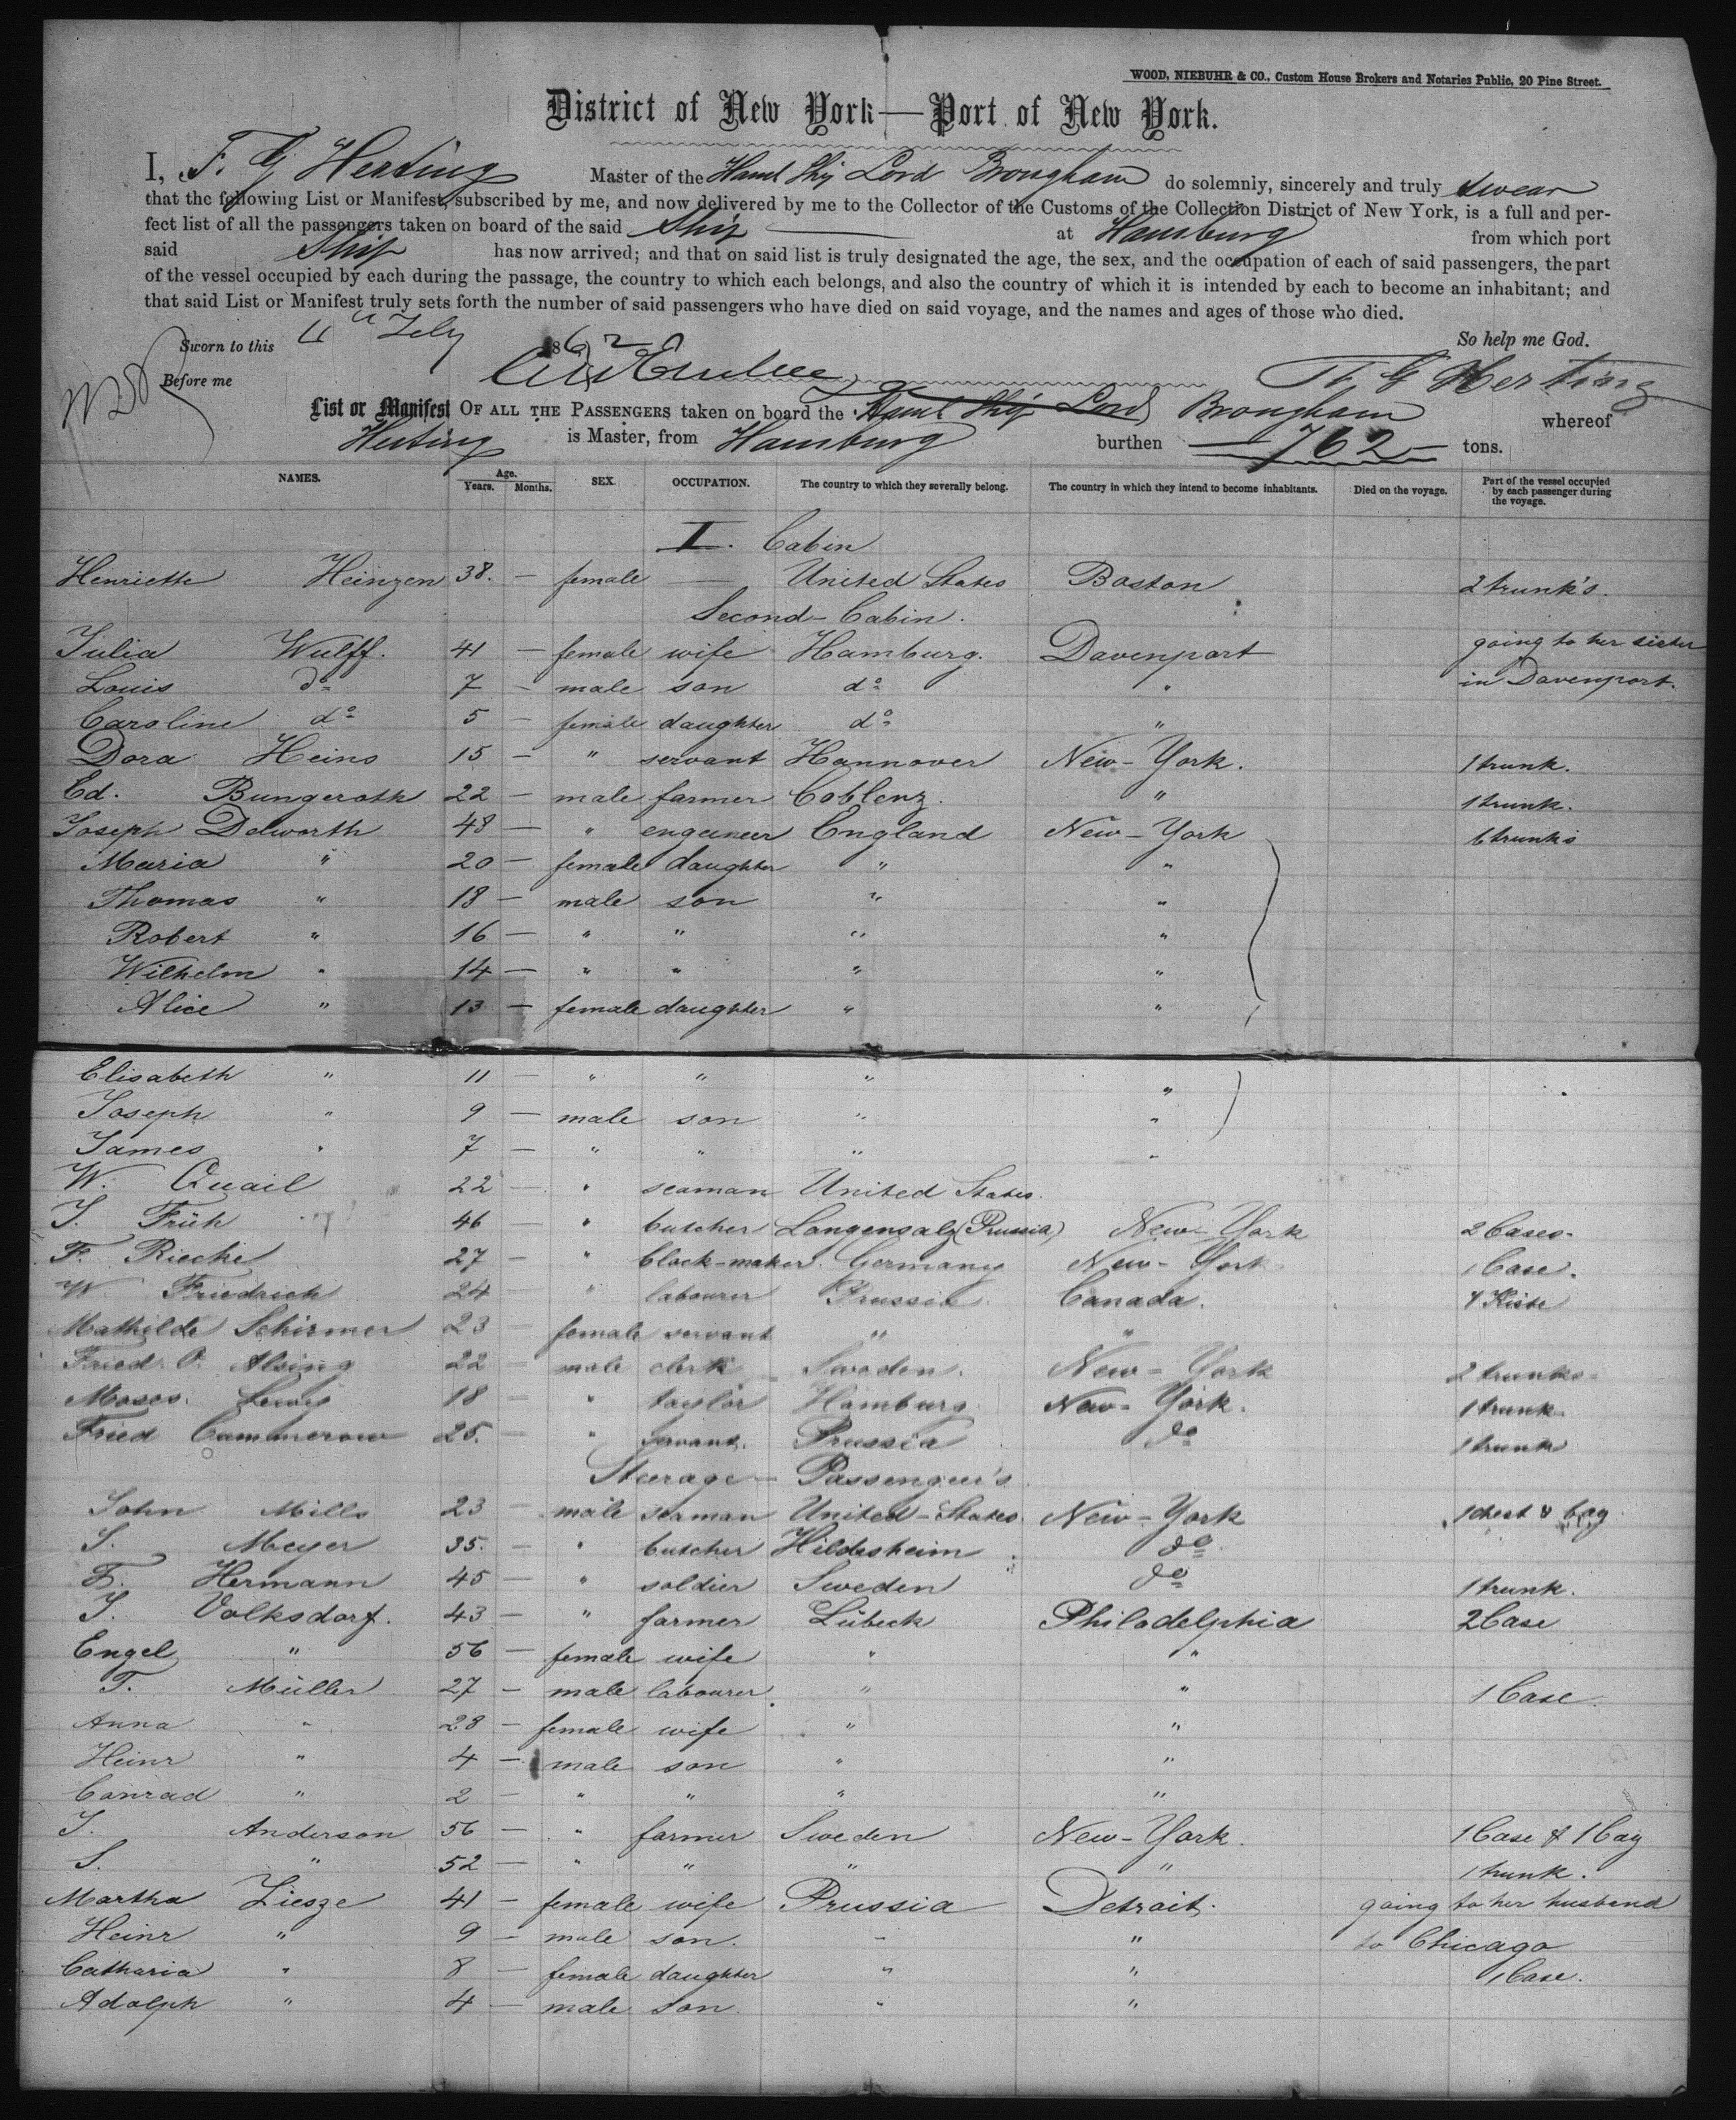 WOOD, NIEBUHR & CO., Custom House Brokers and Notaries Public, 20 Pine Street.
District of New York—Port of New York.
I, F. G Herting Master of the Hamb Ship Lord Brougham do solemnly, sincerely and truly swear
that the following List or Manifest, subscribed by me, and now delivered by me to the Collector of the Customs of the Collection District of New York, is a full and per-
fect list of all the passengers taken on board of the said Ship at Hamburg from which port
said Ship has now arrived; and that on said list is truly designated the age, the sex, and the occupation of each of said passengers, the part
of the vessel occupied by each during the passage, the country to which each belongs, and also the country of which it is intended by each to become an inhabitant; and
that said List or Manifest truly sets forth the number of said passengers who have died on said voyage, and the names and ages of those who died.
Sworn to this 1862 So help me God.
Before me Herting
List or Manifest OF ALL THE PASSENGERS taken on board the Hamb Ship Lord Brougham whereof
Herting is Master, from Hamburg burthen 762 tons.
NAMES. Age. Years. Months. SEX. OCCUPATION. The country to which they severally belong. The country in which they intend to become inhabitants. Died on the voyage. Part of the vessel occupied by each passenger during the voyage.
I. Cabin
Henriette Heinzen 38. — female — United States Boston 2 trunk's.
Second-Cabin.
Julia Wulff. 41 — female wife Hamburg. Davenport going to her sister
Louis do 7 — male son do " in Davenport.
Caroline do 5 — female daughter do "
Dora Heins 15 — " servant Hannover New-York. 1 trunk.
Ed. Bungeroth 22 — male farmer Coblenz. " 1 trunk.
Joseph Delworth 48 — " engeneer England New-York 6 trunks
Maria " 20 — female daughter " "
Thomas " 18 — male son " "
Robert " 16 — " " " "
Wilhelm " 14 — " " " "
Alice " 13 — female daughter " "
Elisabeth " 11 — " " " "
Joseph " 9 — male son " "
James " 7 — " " " "
W. Quail 22 — " seaman United States.
J. Früh 46 — " butcher Langensalz (Prussia) New-York 2 Cases.
F. Rieche 27 — " Clock-maker. Germany New-York 1 Case.
W. Friedrich 24 — " labourer Prussia Canada. 1 Kiste
Mathilde Schirmer 23 — female servant " "
Fried. O. Alsing 22 — male clerk Sweden. New-York 2 trunks
Moses. Levy 18 — " taylor Hamburg New-York. 1 trunk
Fried Cummerow 25. — " servant. Prussia do 1 trunk
Steerage-Passengeer's
John Mills 23 — male seaman United-States New-York 1 chest & bag
J. Meyer 35. — " butcher Hildesheim do
F. Hermann 45 — " soldier Sweden do 1 trunk.
J. Volksdorf. 43 — " farmer Lübeck Philadelphia 2 Case
Engel " 56 — female wife " "
T. Müller 27 — male labourer. " " 1 Case.
Anna " 28 — female wife " "
Heinr " 4 — male son " "
Conrad " 2 — " " " "
J. Anderson 56 — " farmer Sweden New-York. 1 Case & 1 bag
S. " 52 — " " " " 1 trunk.
Martha Ziesze 41 — female wife Prussia Detroit. going to her husband
Heinr " 9 — male son. " " to Chicago
Catharia " 8 — female daughter " " 1 Case.
Adolph " 4 — male son " "